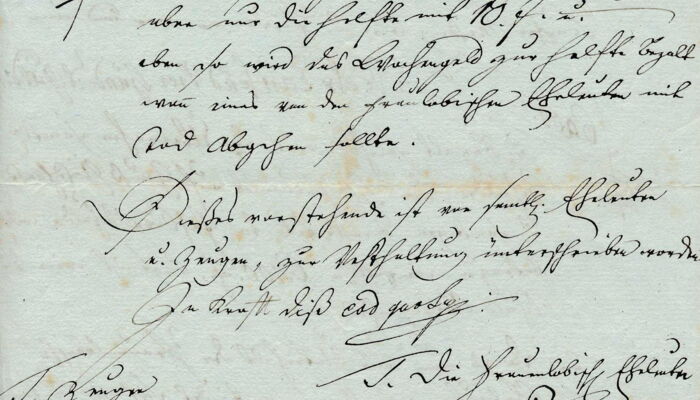 aber nur die helfte mit 10. f. u.
eben so wird das Wochengeld zur helfte bezalt
wann eines von den Fraulobischen Eheleuten mit
Tod Abgehen sollte.
Dießes vorstehende ist von samtl. Eheleuten
u. Zeugen, zur Vesthaltung unterschrieben worden
In Kraft diß eod
T. Zeugen
T. Die Frauenlobisch Eheleuten